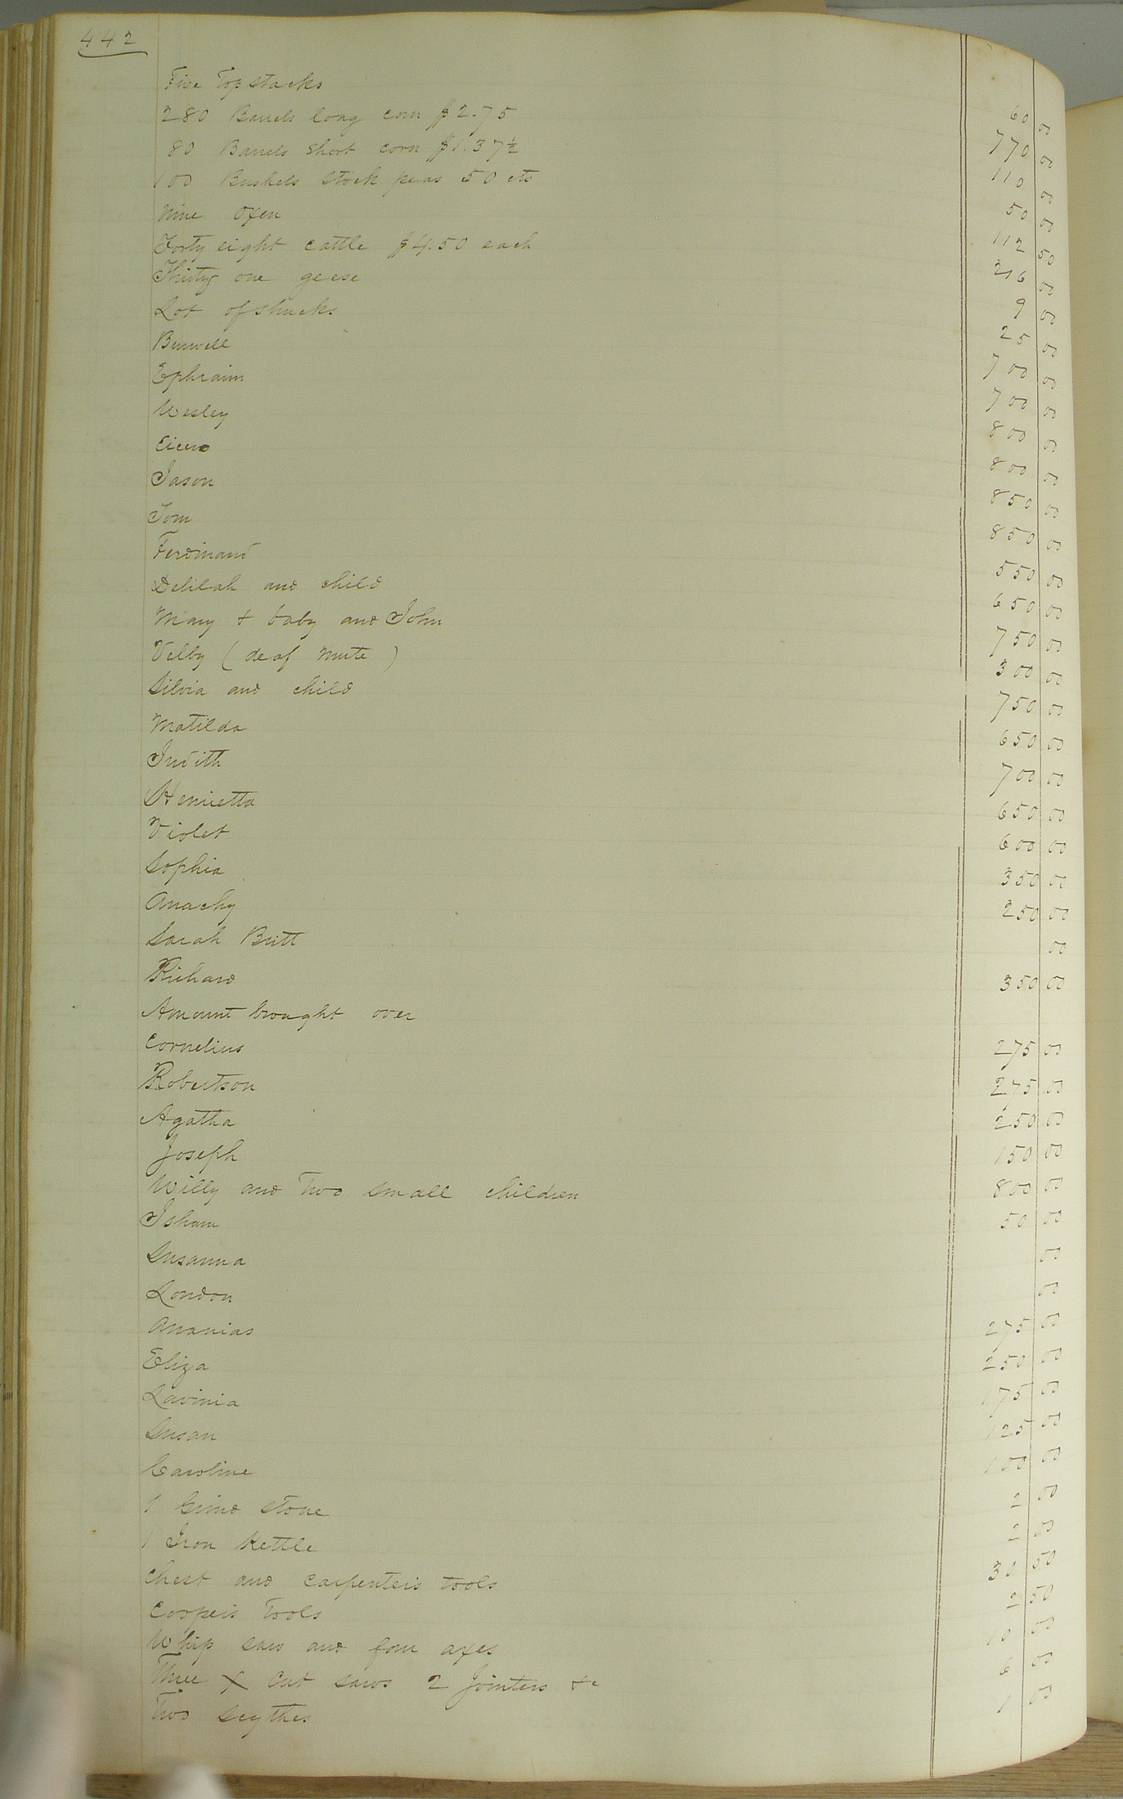 442
Five Top stacks 60 00
280 Barrels long corn $2.75 770 00
80 Barrels short corn $1.37½ 110 00
100 Bushels stock peas 50 cts 50 00
Nine Oxen 112 50
Forty eight cattle $4.50 each 216 00
Thirty one geese 9 00
Lot of shucks 25 00
Burwell 700 00
Ephraim 700 00
Wesley 800 00
Cicero 800 00
Jason 850 00
Tom 850 00
Ferdinand 550 00
Delilah and child 650 00
Mary + baby and John 750 00
Velby (deaf mute) 300 00
Silvia and child 750 00
Matilda 650 00
Judith 700 00
Henrietta 650 00
Violet 600 00
Sophia 350 00
Anachy 250 00
Sarah Britt 00
Richard 350 00
Amount brought over
Cornelius 275 00
Robertson 275 00
Agatha 250 00
Joseph 150 00
Willy and Two small children 800 00
Isham 50 00
Susanna 00
London 00
Ananias 275 00
Eliza 250 00
Lavinia 175 00
Susan 125 00
Caroline 100 00
1 Grind stone 2 00
1 Iron Kettle 2 00
Chest and carpenters tools 30 50
Coopers Tools 2 50
Whip saw and four axes 10 00
Three X Cut saws 2 Jointers &c 6 00
Two Scythes 1 00